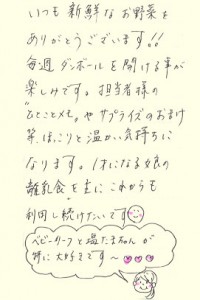 いつも新鮮なお野菜を
ありがとうございます!!
毎週ダンボールを開ける事が
楽しみです。担当者様の
"とことこメモ"やサプライズのおまけ
等、ほっこりと温かい気持ちに
なります。1才になる娘の
離乳食を主にこれからも
利用し続けたいです
ベビーリーフと温たまちゃんが
特に大好きです〜